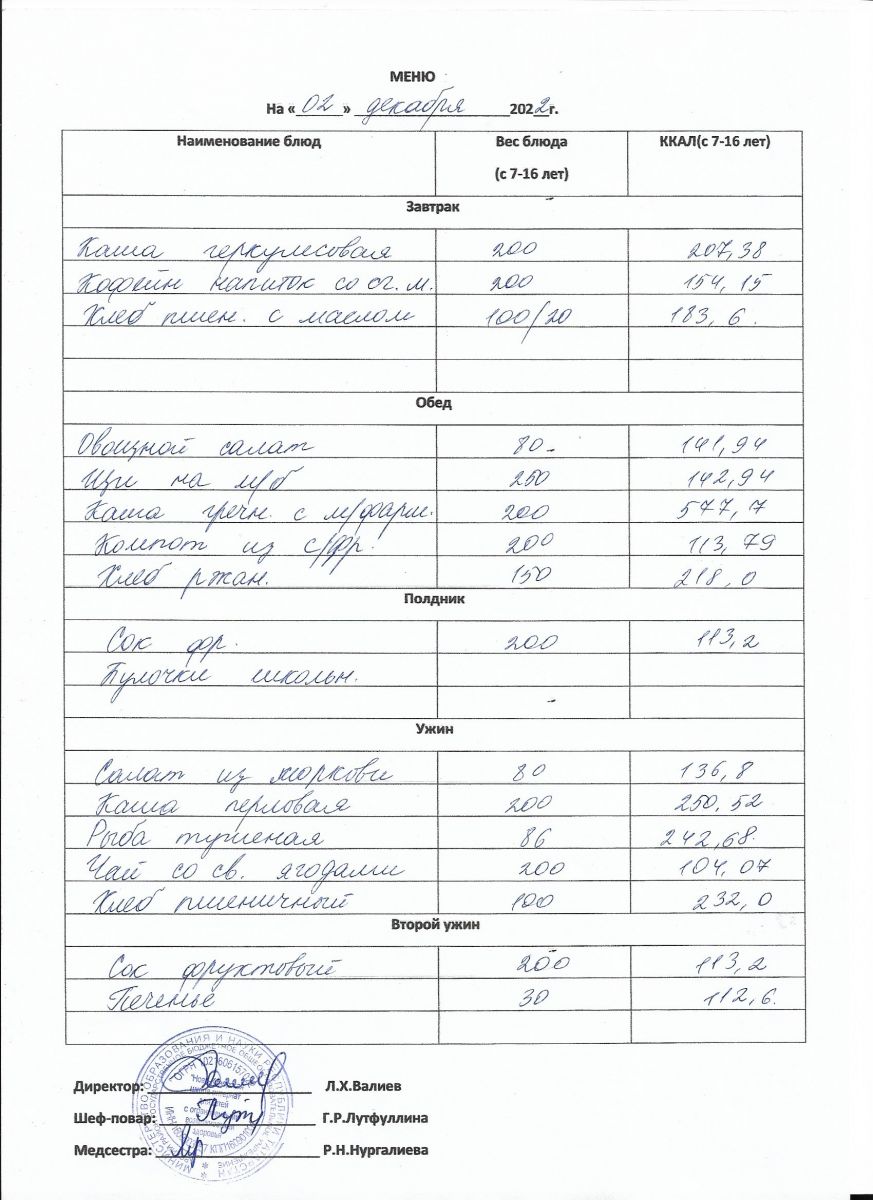 МЕНЮ
На « 02 » декабря 2022г.
Наименование блюд Вес блюда (с 7-16 лет) ККАЛ(с 7-16 лет)
Завтрак
Каша геркулесовая 200 207,38
Кофейн напиток со сг. м. 200 154,15
Хлеб пшен. с маслом 100/20 183,6.
Обед
Овощной салат 80 141,94
Щи на м/б 250 142,94
Каша гречн. с м/фарш. 200 577,7
Компот из с/фр. 200 113,79
Хлеб ржан. 150 218,0
Полдник
Сок фр. 200 113,2
Булочки школьн.
Ужин
Салат из моркови 80 136,8
Каша перловая 200 250,52
Рыба тушеная 86 242,68.
Чай со св. ягодами 200 104,07
Хлеб пшеничный 100 232,0
Второй ужин
Сок фруктовый 200 113,2
Печенье 30 112,6.
Директор: Л.Х.Валиев
Шеф-повар: Г.Р.Лутфуллина
Медсестра: Р.Н.Нургалиева